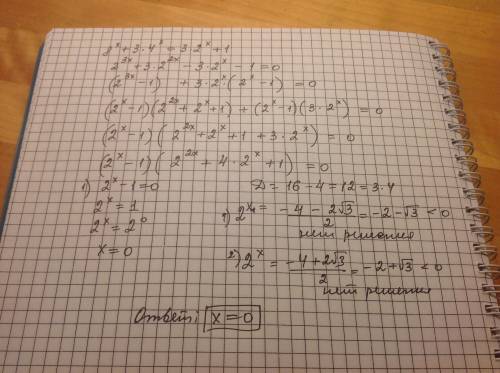 8^x + 3·4^x = 3·2^x + 1
2^{3x} + 3·2^{2x} - 3·2^x - 1 = 0
(2^{3x} - 1) + 3·2^x (2^x - 1) = 0
(2^x - 1)(2^{2x} + 2^x + 1) + (2^x - 1)(3·2^x) = 0
(2^x - 1)(2^{2x} + 2^x + 1 + 3·2^x) = 0
(2^x - 1)(2^{2x} + 4·2^x + 1) = 0
1) 2^x - 1 = 0
2^x = 1
2^x = 2^0
x = 0
D = 16 - 4 = 12 = 3·4
1) 2^{x_1} = (-4 - 2√3)/2 = -2 - √3 < 0
нет решения
2) 2^x = (-4 + 2√3)/2 = -2 + √3 < 0
нет решения
Ответ: x = 0